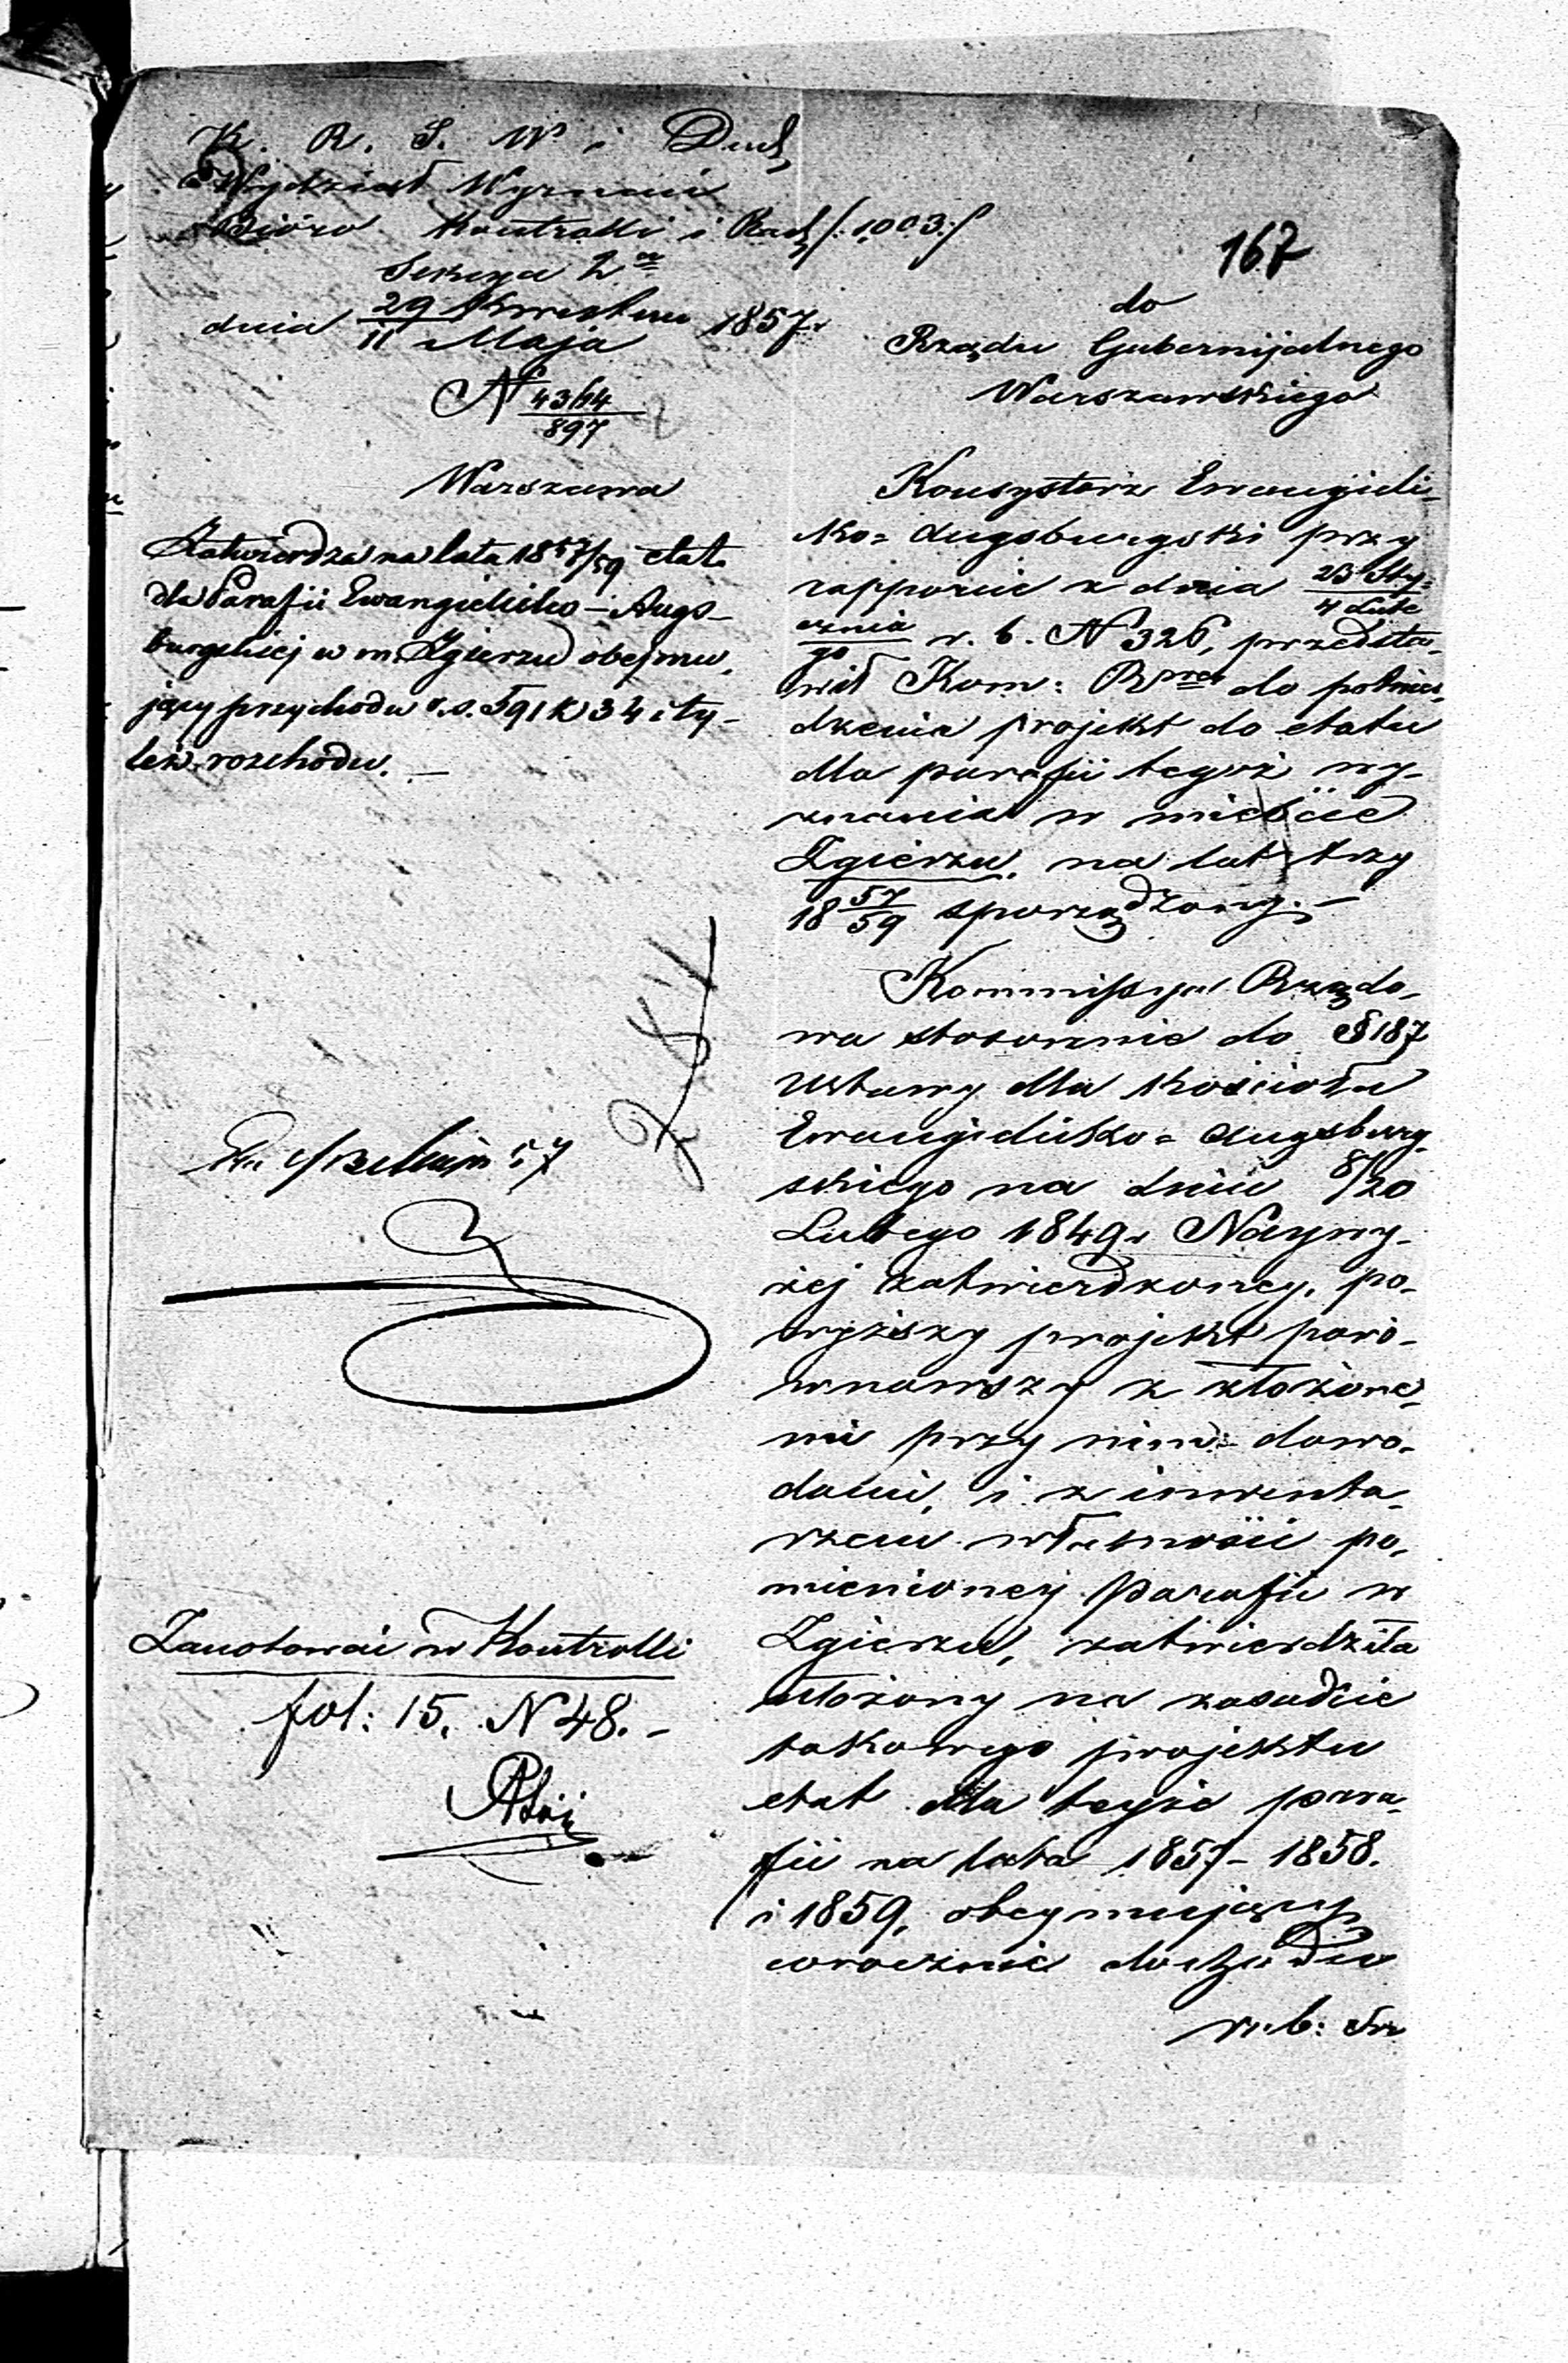 K. R. S. W. i Duch
Wydział Wyznań
Bióro Kontrolli i Rach /:1003:/
Sekcya 2a
dnia 29 Kwietnia / 11 Maja 1857 r
N 4364/897
Warszawa
Zatwierdza na lata 1857/59 etat
dla Parafii Ewangielicko-Augs-
burgskiej w m. Zgierzu obejmu-
jący przychodu r.s. 591 k 34 i ty-
leż rozchodu. —
57
Zanotować w Kontrolli
fol: 15. N 48. -
167
do
Rządu Gubernijalnego
Warszawskiego
Konsystorz Ewangieli-
ko= Augsburgski przy
rapporcie z dnia 23 Sty- / 4 Lute
cznia / go r. b. N 326, przedsta-
wił Kom: Rząd do potwier-
dzenia projekt do etatu
dla parafii tegoż wy-
znania w mieście
Zgierzu, na lat trzy
18 57/59 sporządzony. —
Kommissya Rządo-
wa stosownie do § 187
Ustawy dla Kościoła
Ewangielicko= Augsburg-
skiego na dniu 8/20
Lutego 1849 r Naywy-
żej zatwierdzoney, po-
wyższy projekt poró-
wnawszy z złożone-
mi przy nim dowo-
dami, i z inwenta-
rzem własności po-
mienioney Parafii w
Zgierzu, zatwierdziła
ułożony na zasadzie
takowego projektu
etat dla teyże para-
fii na lata 1857 - 1858.
i 1859, obeymujący
corocznie dochodu